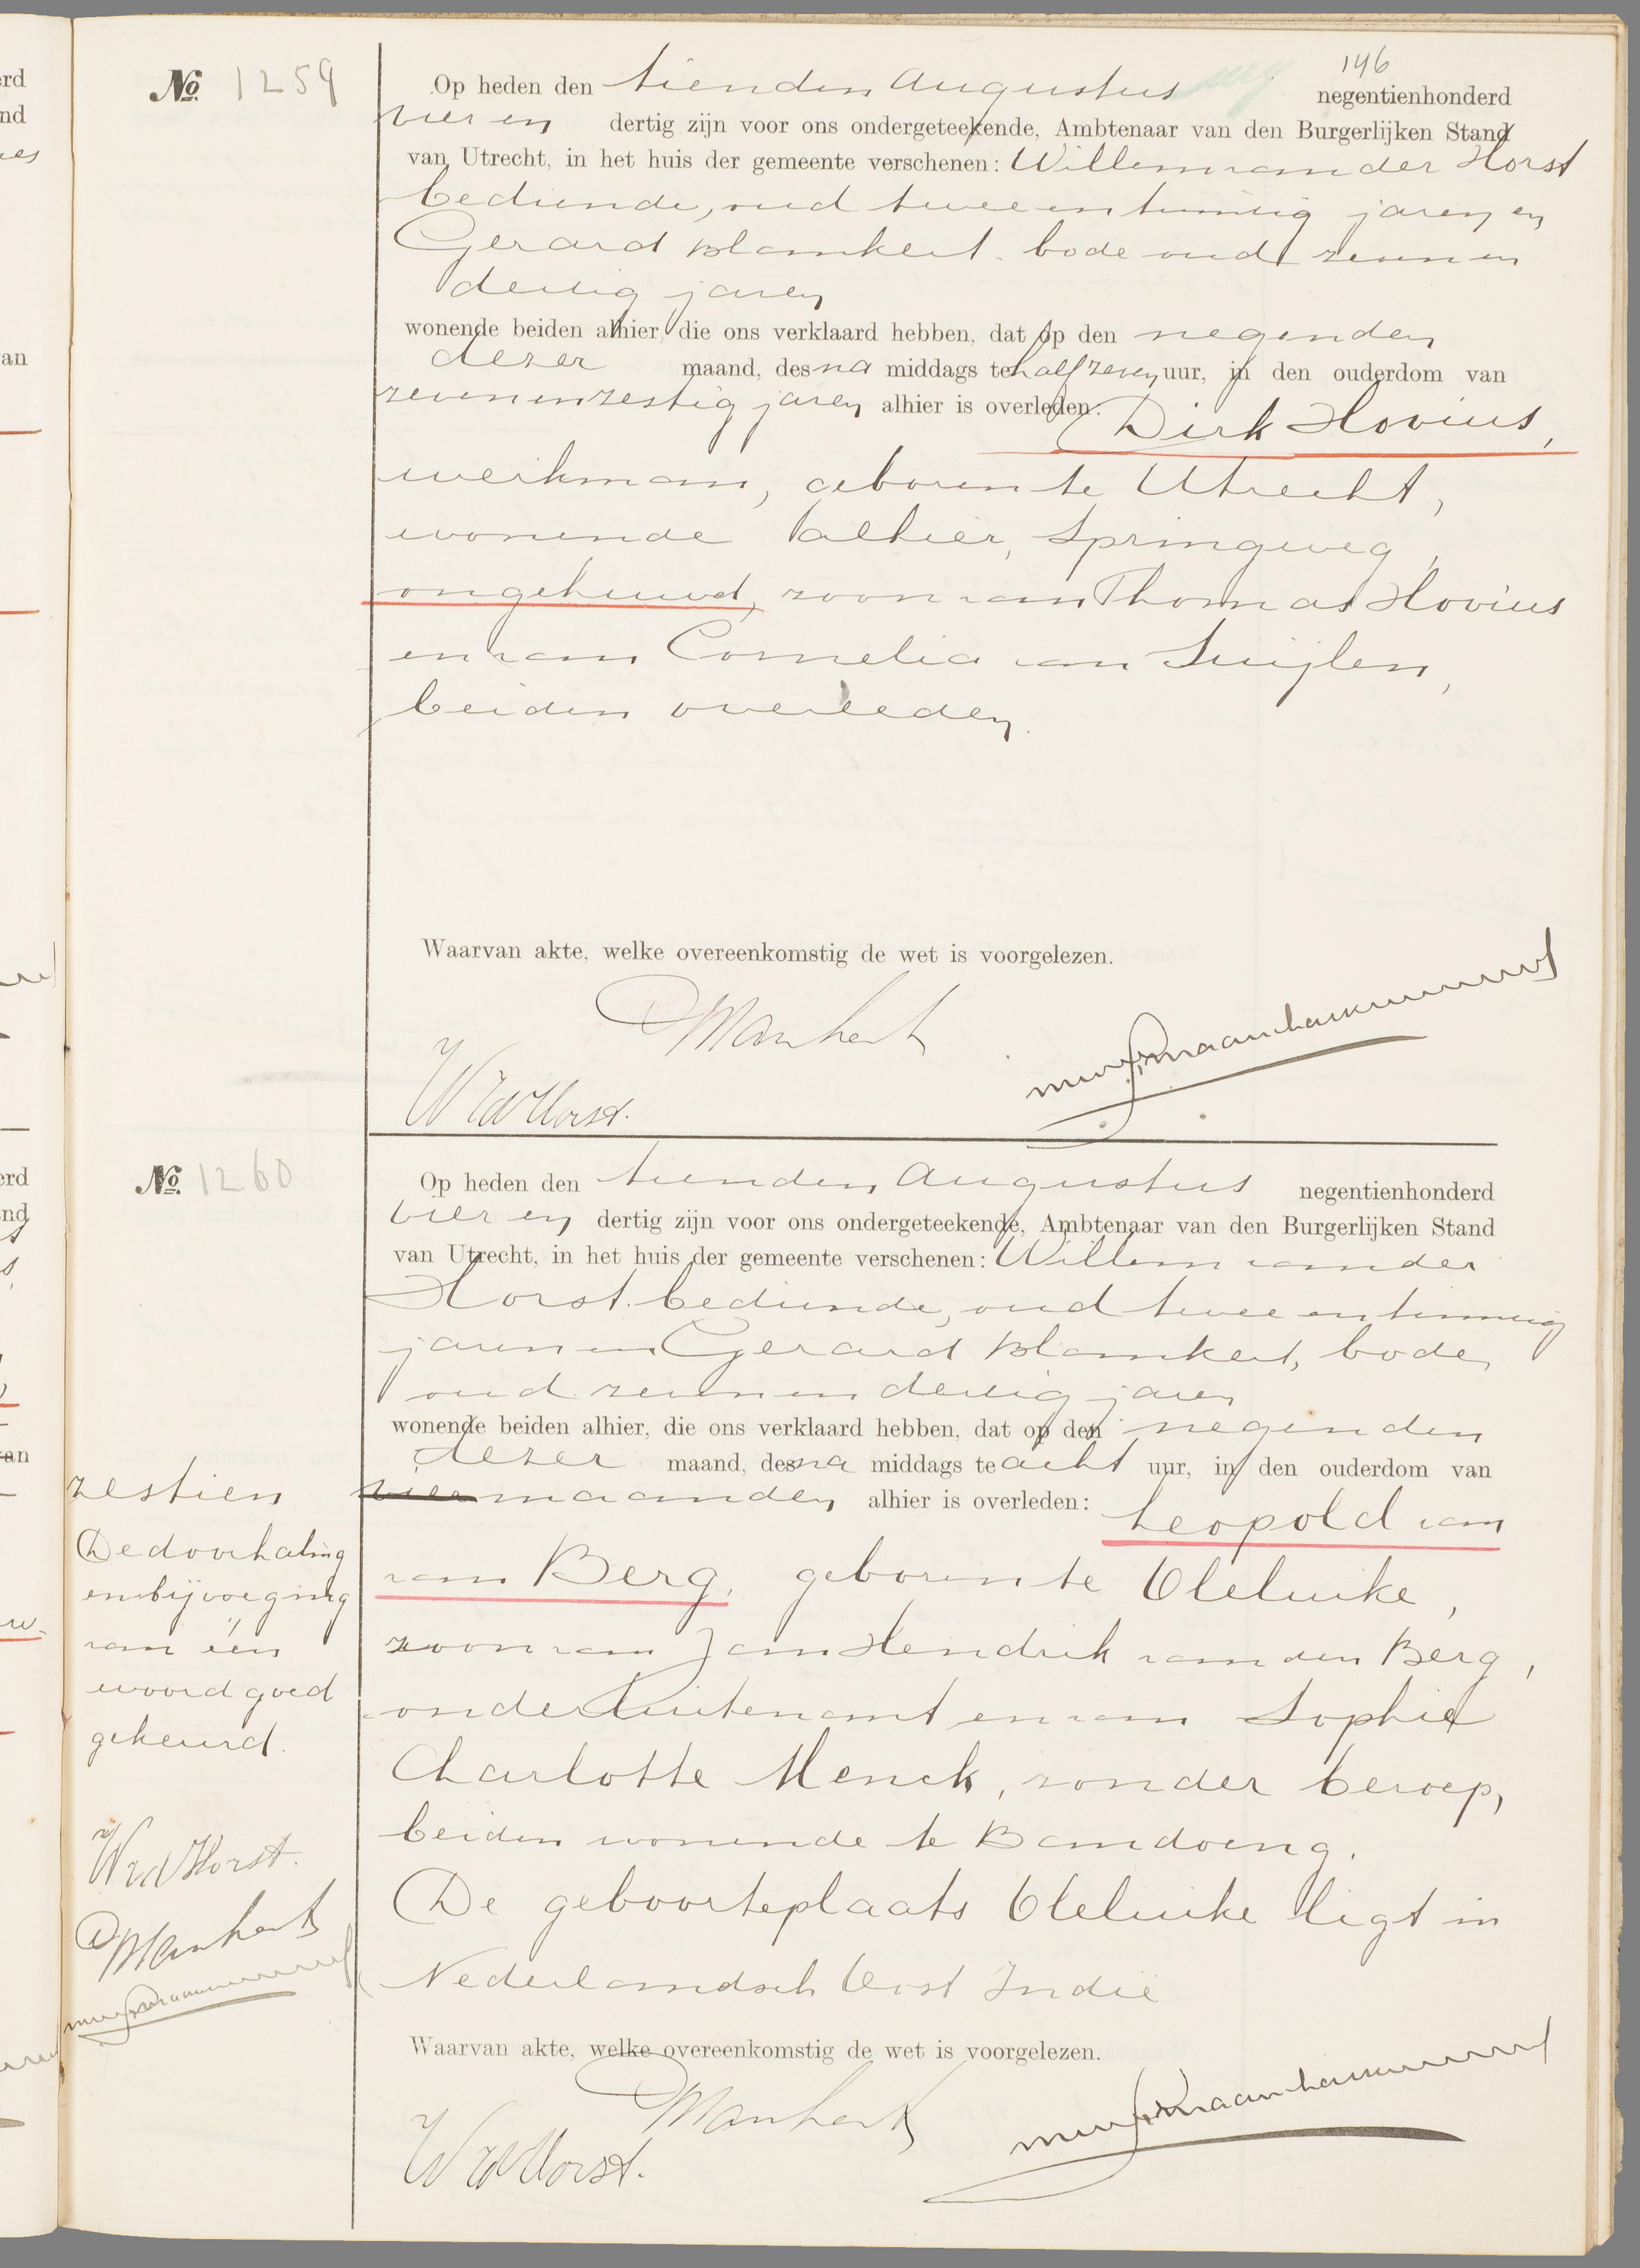 146
No. 1259
Op heden den tienden Augustus negentienhonderd
vier en dertig zijn voor ons ondergeteekende, Ambtenaar van den Burgerlijken Stand
van Utrecht, in het huis der gemeente verschenen: Willem van der Horst
bediende, oud twee en twintig jaren en
Gerard Blankert, bode oud zeven en
dertig jaren
wonende beiden alhier, die ons verklaard hebben, dat op den negenden
dezer maand, des na middags te half zeven uur, in den ouderdom van
zevenenzestig jaren alhier is overleden: Dirk Hovius,
werkman, geboren te Utrecht,
wonende alhier, Springweg,
ongehuwd, zoon van Thomas Hovius
en van Cornelia van Zuijlen,
beiden overleden.
Waarvan akte, welke overeenkomstig de wet is voorgelezen.
GBlankert
WvdHorst.
No. 1260
Op heden den tienden Augustus negentienhonderd
vier en dertig zijn voor ons ondergeteekende, Ambtenaar van den Burgerlijken Stand
van Utrecht, in het huis der gemeente verschenen: Willem van der
Horst bediende, oud twee en twintig
jaren en Gerard Blankert, bode,
oud zeven en dertig jaren
wonende beiden alhier, die ons verklaard hebben, dat op den negenden
dezer maand, des na middags te acht uur, in den ouderdom van
zestien vier maanden alhier is overleden: Leopold van
van Berg, geboren te Oleluike,
zoon van Jan Hendrik van den Berg,
onderluitenant en van Sophie
Charlotte Menck, zonder beroep,
beiden wonende te Bandoeng.
De geboorteplaats Oleluike ligt in
Nederlandsch Oost Indië
Waarvan akte, welke overeenkomstig de wet is voorgelezen.
GBlankert
WvdHorst.
De doorhaling
en bijvoeging
van één
woord goed
gekeurd.
WvdHorst.
GBlankert